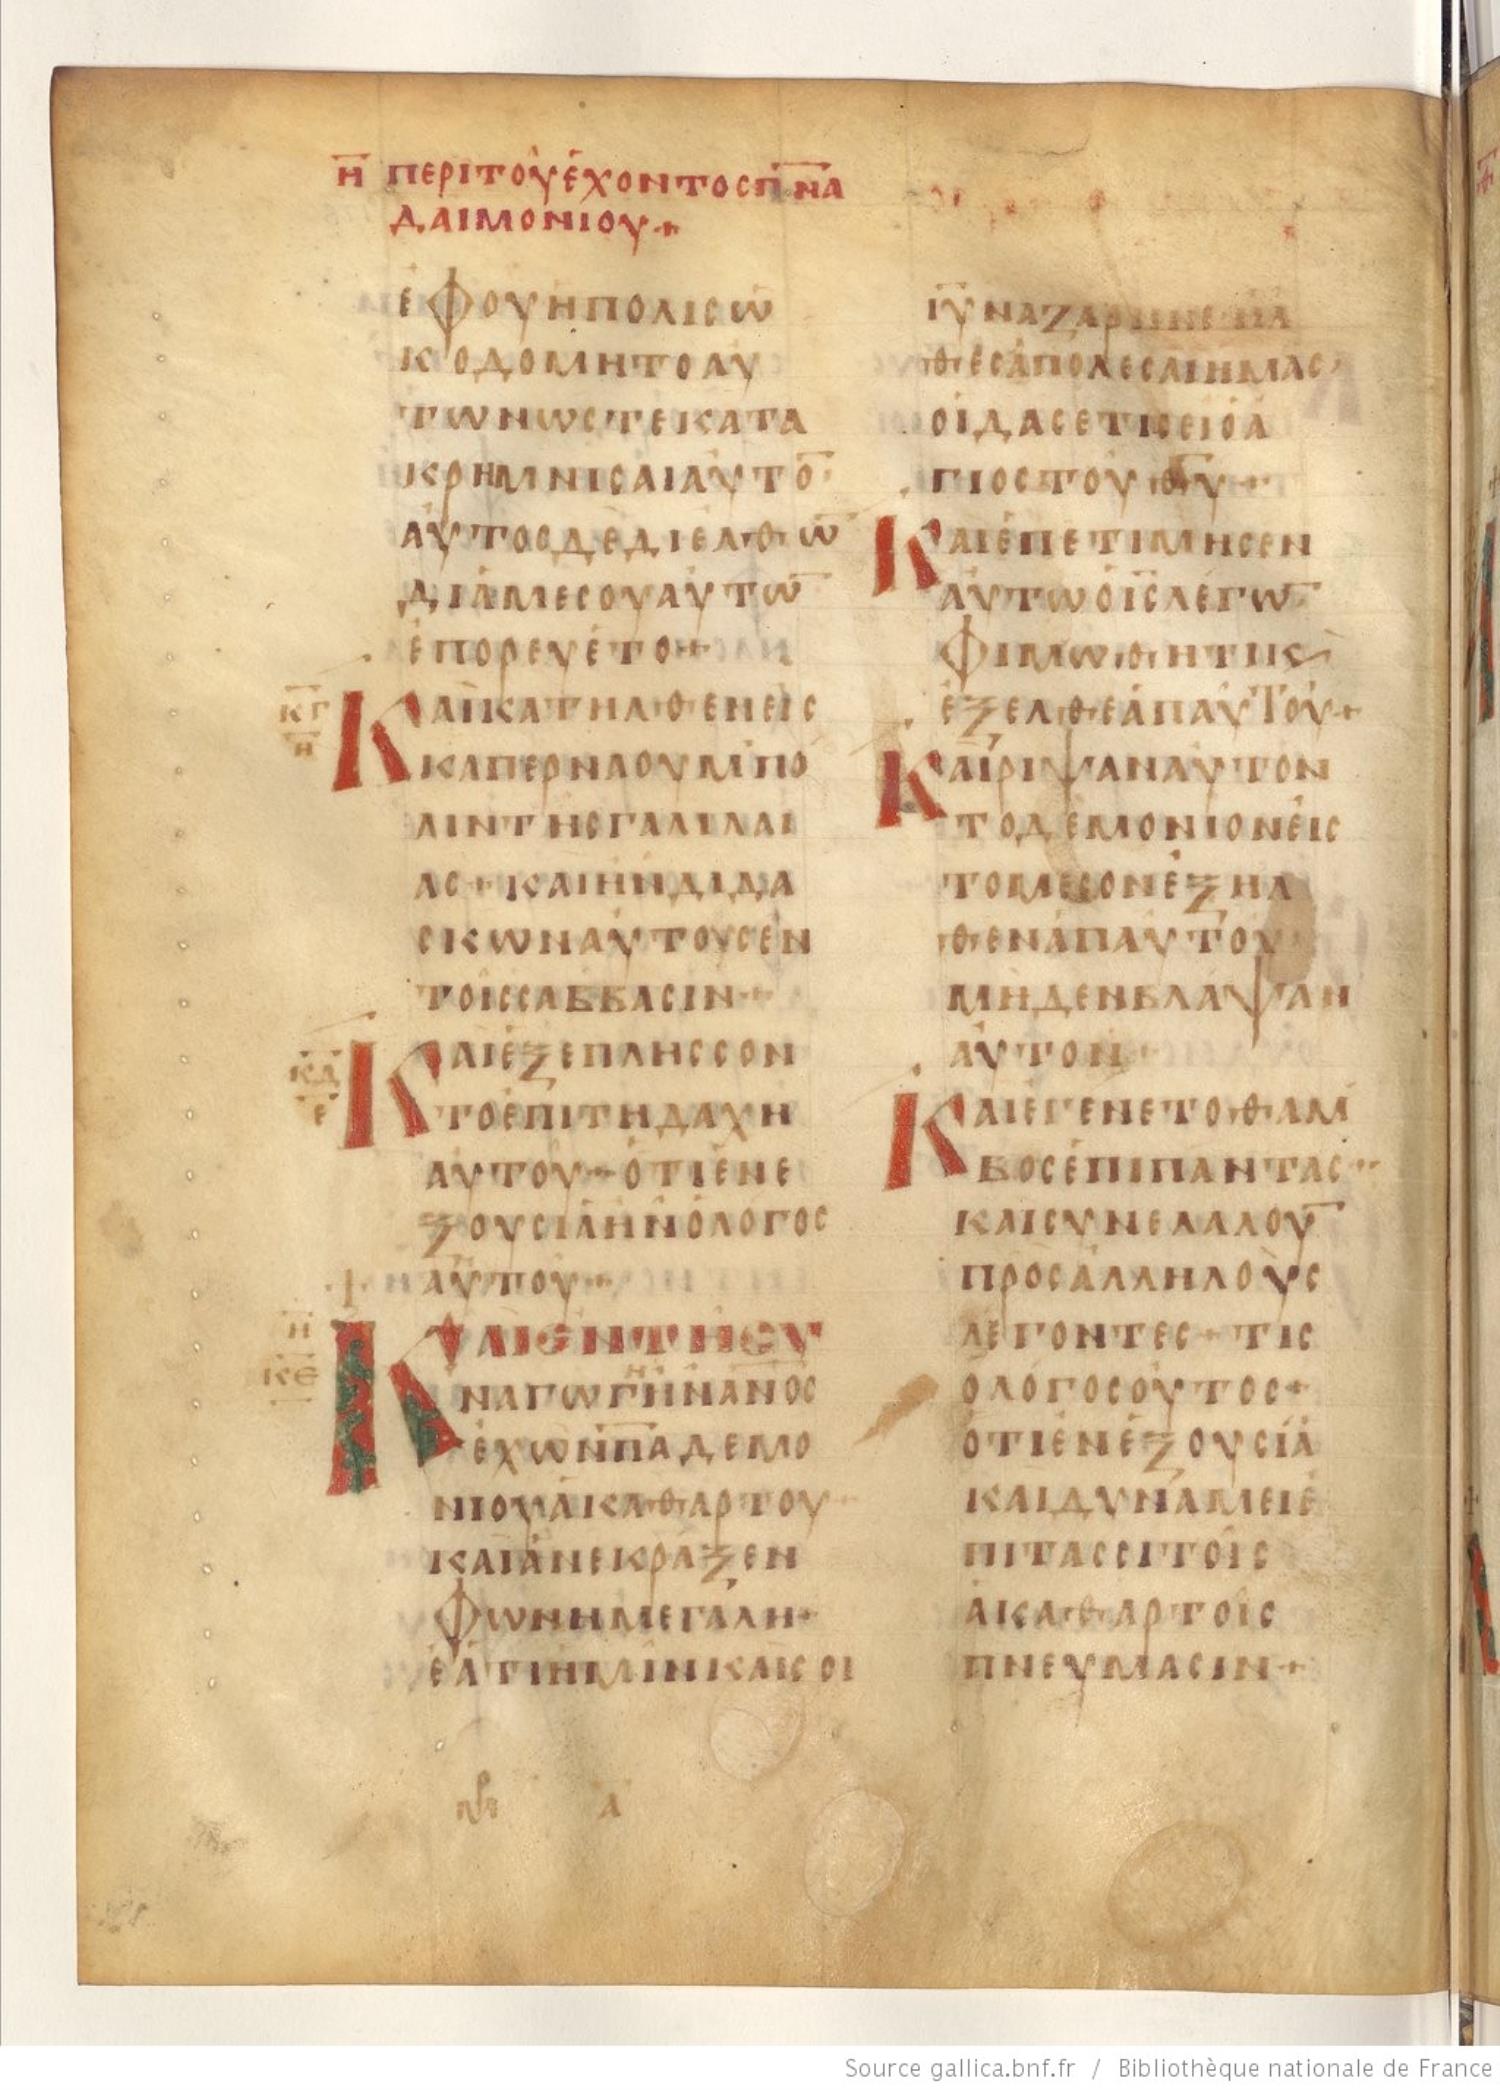 Η̅ ΠΕΡΙΤΟΥΕΧΟΝΤΟΣΠ̅Ν̅Α
ΔΑΙΜΟΝΙΟΥ+
ΕΦΟΥΗΠΟΛΙϹΩ̅
ΚΟΔΟΜΗΤΟΑΥ
ΤΩΝΩϹΤΕΚΑΤΑ
ΚΡΗΜΝΙϹΑΙΑΥΤΟ̅
ΑΥΤΟϹΔΕΔΙΕΛΘΩ̅
ΔΙΑΜΕϹΟΥΑΥΤΩ̅
ΕΠΟΡΕΥΕΤΟ+
Κ̅Γ̅
Η̅
ΚΑΙΚΑΤΗΛΘΕΝΕΙϹ
ΚΑΠΕΡΝΑΟΥΜΠΟ
ΛΙΝΤΗϹΓΑΛΙΛΑΙ
ΑϹ+ΚΑΙΗΝΔΙΔΑ
ϹΚΩΝΑΥΤΟΥϹΕΝ
ΤΟΙϹϹΑΒΒΑϹΙΝ+
Κ̅Δ̅
Ε
ΚΑΙΕΞΕΠΛΗϹϹΟΝ
ΤΟΕΠΙΤΗΔΑΧΗ
ΑΥΤΟΥ+ΟΤΙΕΝΕ
ΞΟΥϹΙΑΗΝΟΛΟΓΟϹ
ΑΥΤΟΥ+
Η̅
Κ̅Ε̅
ΚΑΙΕΝΤΗϹΥ
ΝΑΓΩΓΗΗΝΑΝΟϹ
ΕΧΩΝΠ̅Α̅ΔΕΜΟ
ΝΙΟΥΑΚΑΘΑΡΤΟΥ
ΚΑΙΑΝΕΚΡΑΞΕΝ
ΦΩΝΗΜΕΓΑΛΗ+
ΕΑΤΙΗΜΙΝΚΑΙϹΟΙ
Ι̅Υ̅ΝΑΖΑΡΗΝΕΗΛ
ΘΕϹΑΠΟΛΕϹΑΙΗΜΑϹ
ΟΙΔΑϹΕΤΙϹΕΙΟΑ
ΓΙΟϹΤΟΥΘ̅Υ̅+
ΚΑΙΕΠΕΤΙΜΗϹΕΝ
ΑΥΤΩΟΙ̅Ϲ̅ΛΕΓΩ̅
ΦΙΜΩΘΗΤΙΚϚ
ΕΞΕΛΘΕΑΠΑΥΤΟΥ+
ΚΑΙΡΙΨΑΝΑΥΤΟΝ
ΤΟΔΕΜΟΝΙΟΝΕΙϹ
ΤΟΜΕϹΟΝΕΞΗΛ
ΘΕΝΑΠΑΥΤΟΥ
ΜΗΔΕΝΒΛΑΨΑΝ
ΑΥΤΟΝ
ΚΑΙΕΓΕΝΕΤΟΘΑΜ
ΒΟϹΕΠΙΠΑΝΤΑϹ
ΚΑΙϹΥΝΕΛΑΛΟΥ̅
ΠΡΟϹΑΛΛΗΛΟΥϹ
ΛΕΓΟΝΤΕϹ+ΤΙϹ
ΟΛΟΓΟϹΟΥΤΟϹ+
ΟΤΙΕΝΕΞΟΥϹΙΑ
ΚΑΙΔΥΝΑΜΕΙΕ
ΠΙΤΑϹϹΙΤΟΙϹ
ΑΚΑΘΑΡΤΟΙϹ
ΠΝΕΥΜΑϹΙΝ+
Source gallica.bnf.fr / Bibliothèque nationale de France